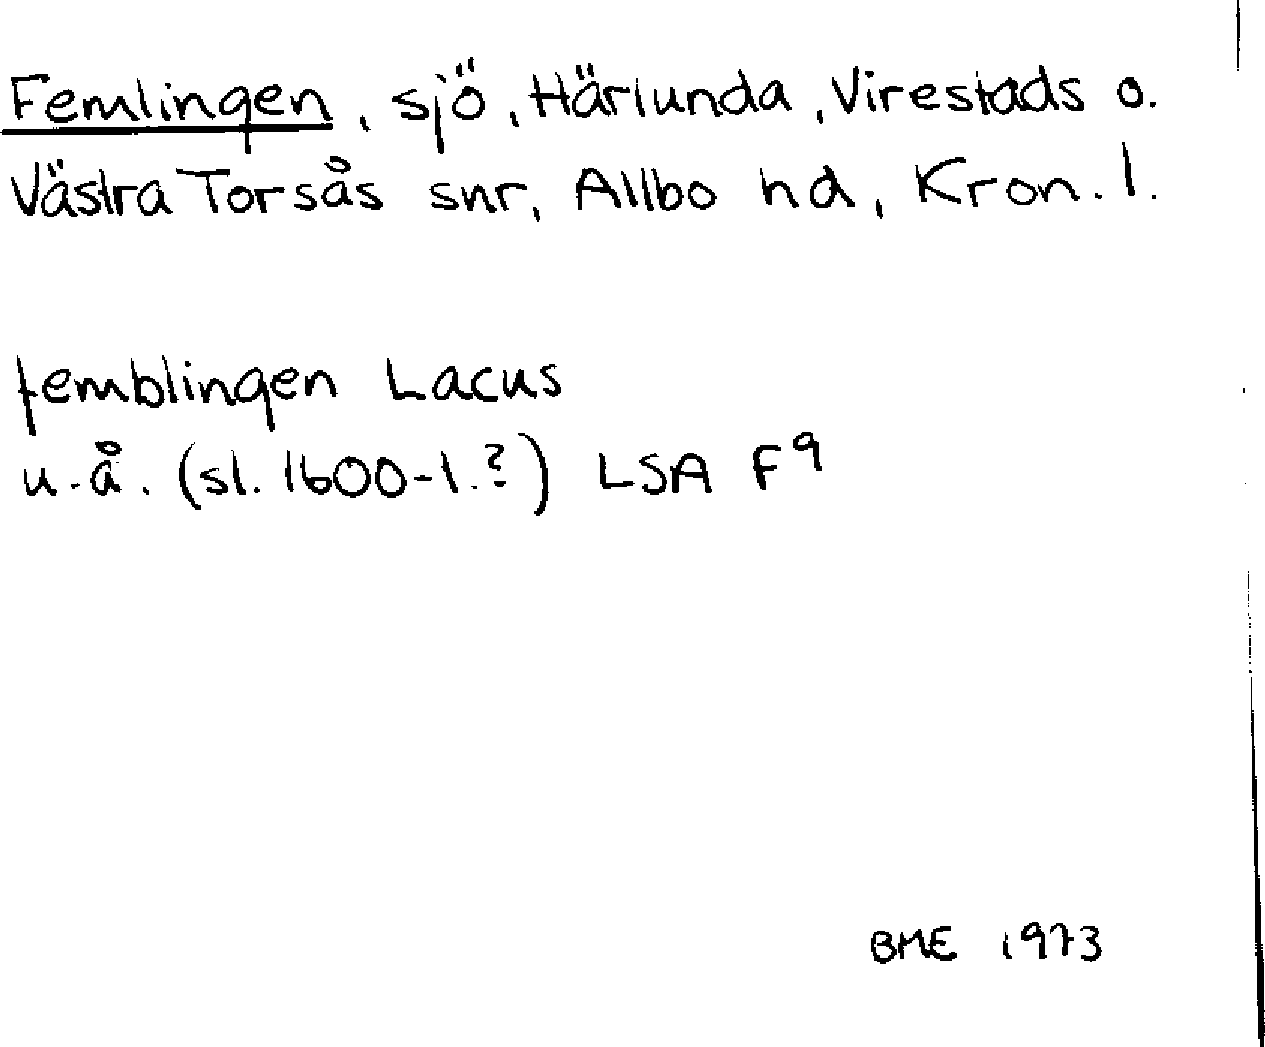 Femlingen, sjö, Härlunda, Virestads o.
Västra Torsås snr, Allbo hd, Kron. l.
femblingen Lacus
u.å. (sl. 1600-t.?) LSA F9
BME 1973